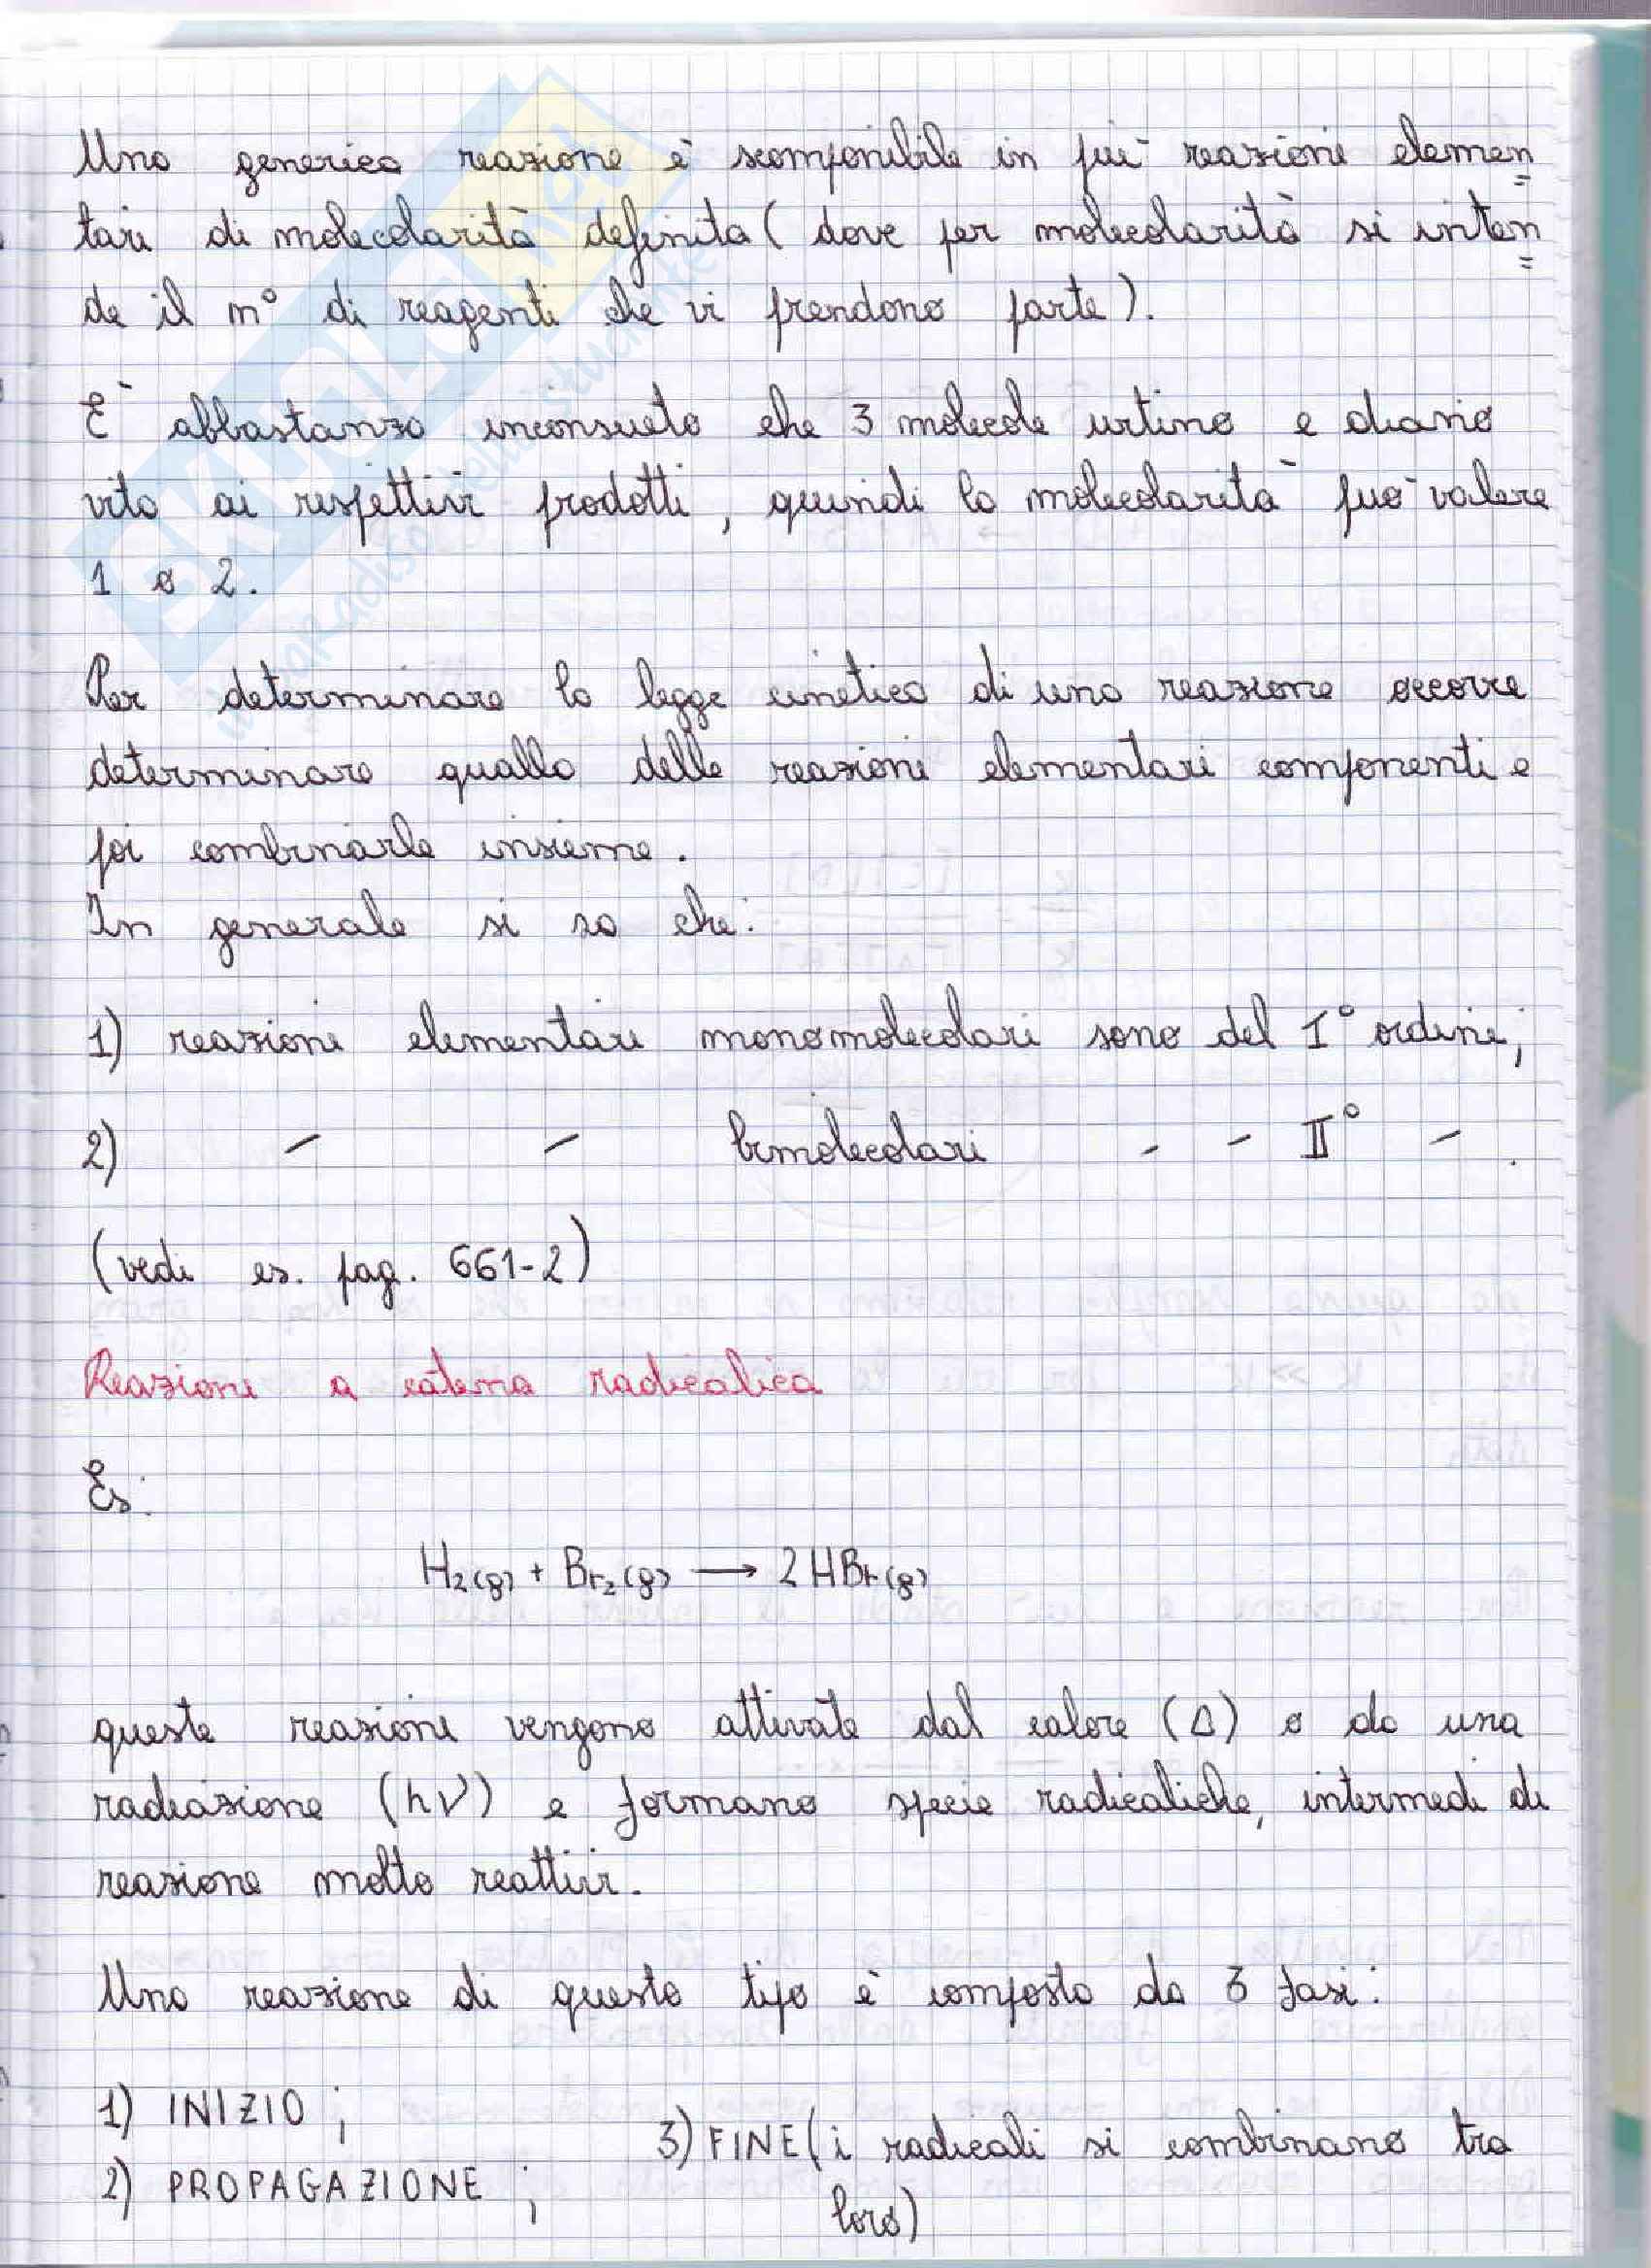 Una generica reazione è scomponibile in più reazioni elemen
tari di molecolarità definita ( dove per molecolarità si inten
de il n° di reagenti che vi prendono parte).
È abbastanza inconsueto che 3 molecole urtino e diano
vita ai rispettivi prodotti, quindi la molecolarità può valere
1 o 2.
Per determinare la legge cinetica di una reazione occorre
determinare quella delle reazioni elementari componenti e
poi combinarle insieme.
In generale si sa che:
1) reazioni elementari monomolecolari sono del I° ordine;
2) - - bimolecolari - - II° - .
(vedi es. pag. 661-2)
Reazioni a catena radicalica
Es:
H₂(g) + Br₂(g) → 2HBr(g)
queste reazioni vengono attivate dal calore (Δ) o da una
radiazione (hν) e formano specie radicaliche, intermedi di
reazione molto reattivi.
Una reazione di questo tipo è composta da 3 fasi:
1) INIZIO ;
2) PROPAGAZIONE ;
3) FINE (i radicali si combinano tra
loro)